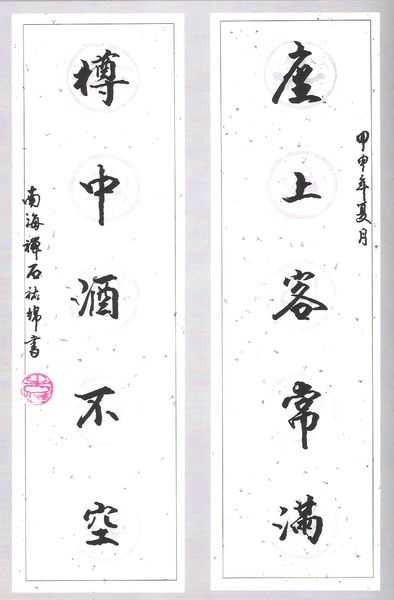 甲申年夏月
座上客常滿
樽中酒不空
南海禪石祐錦書